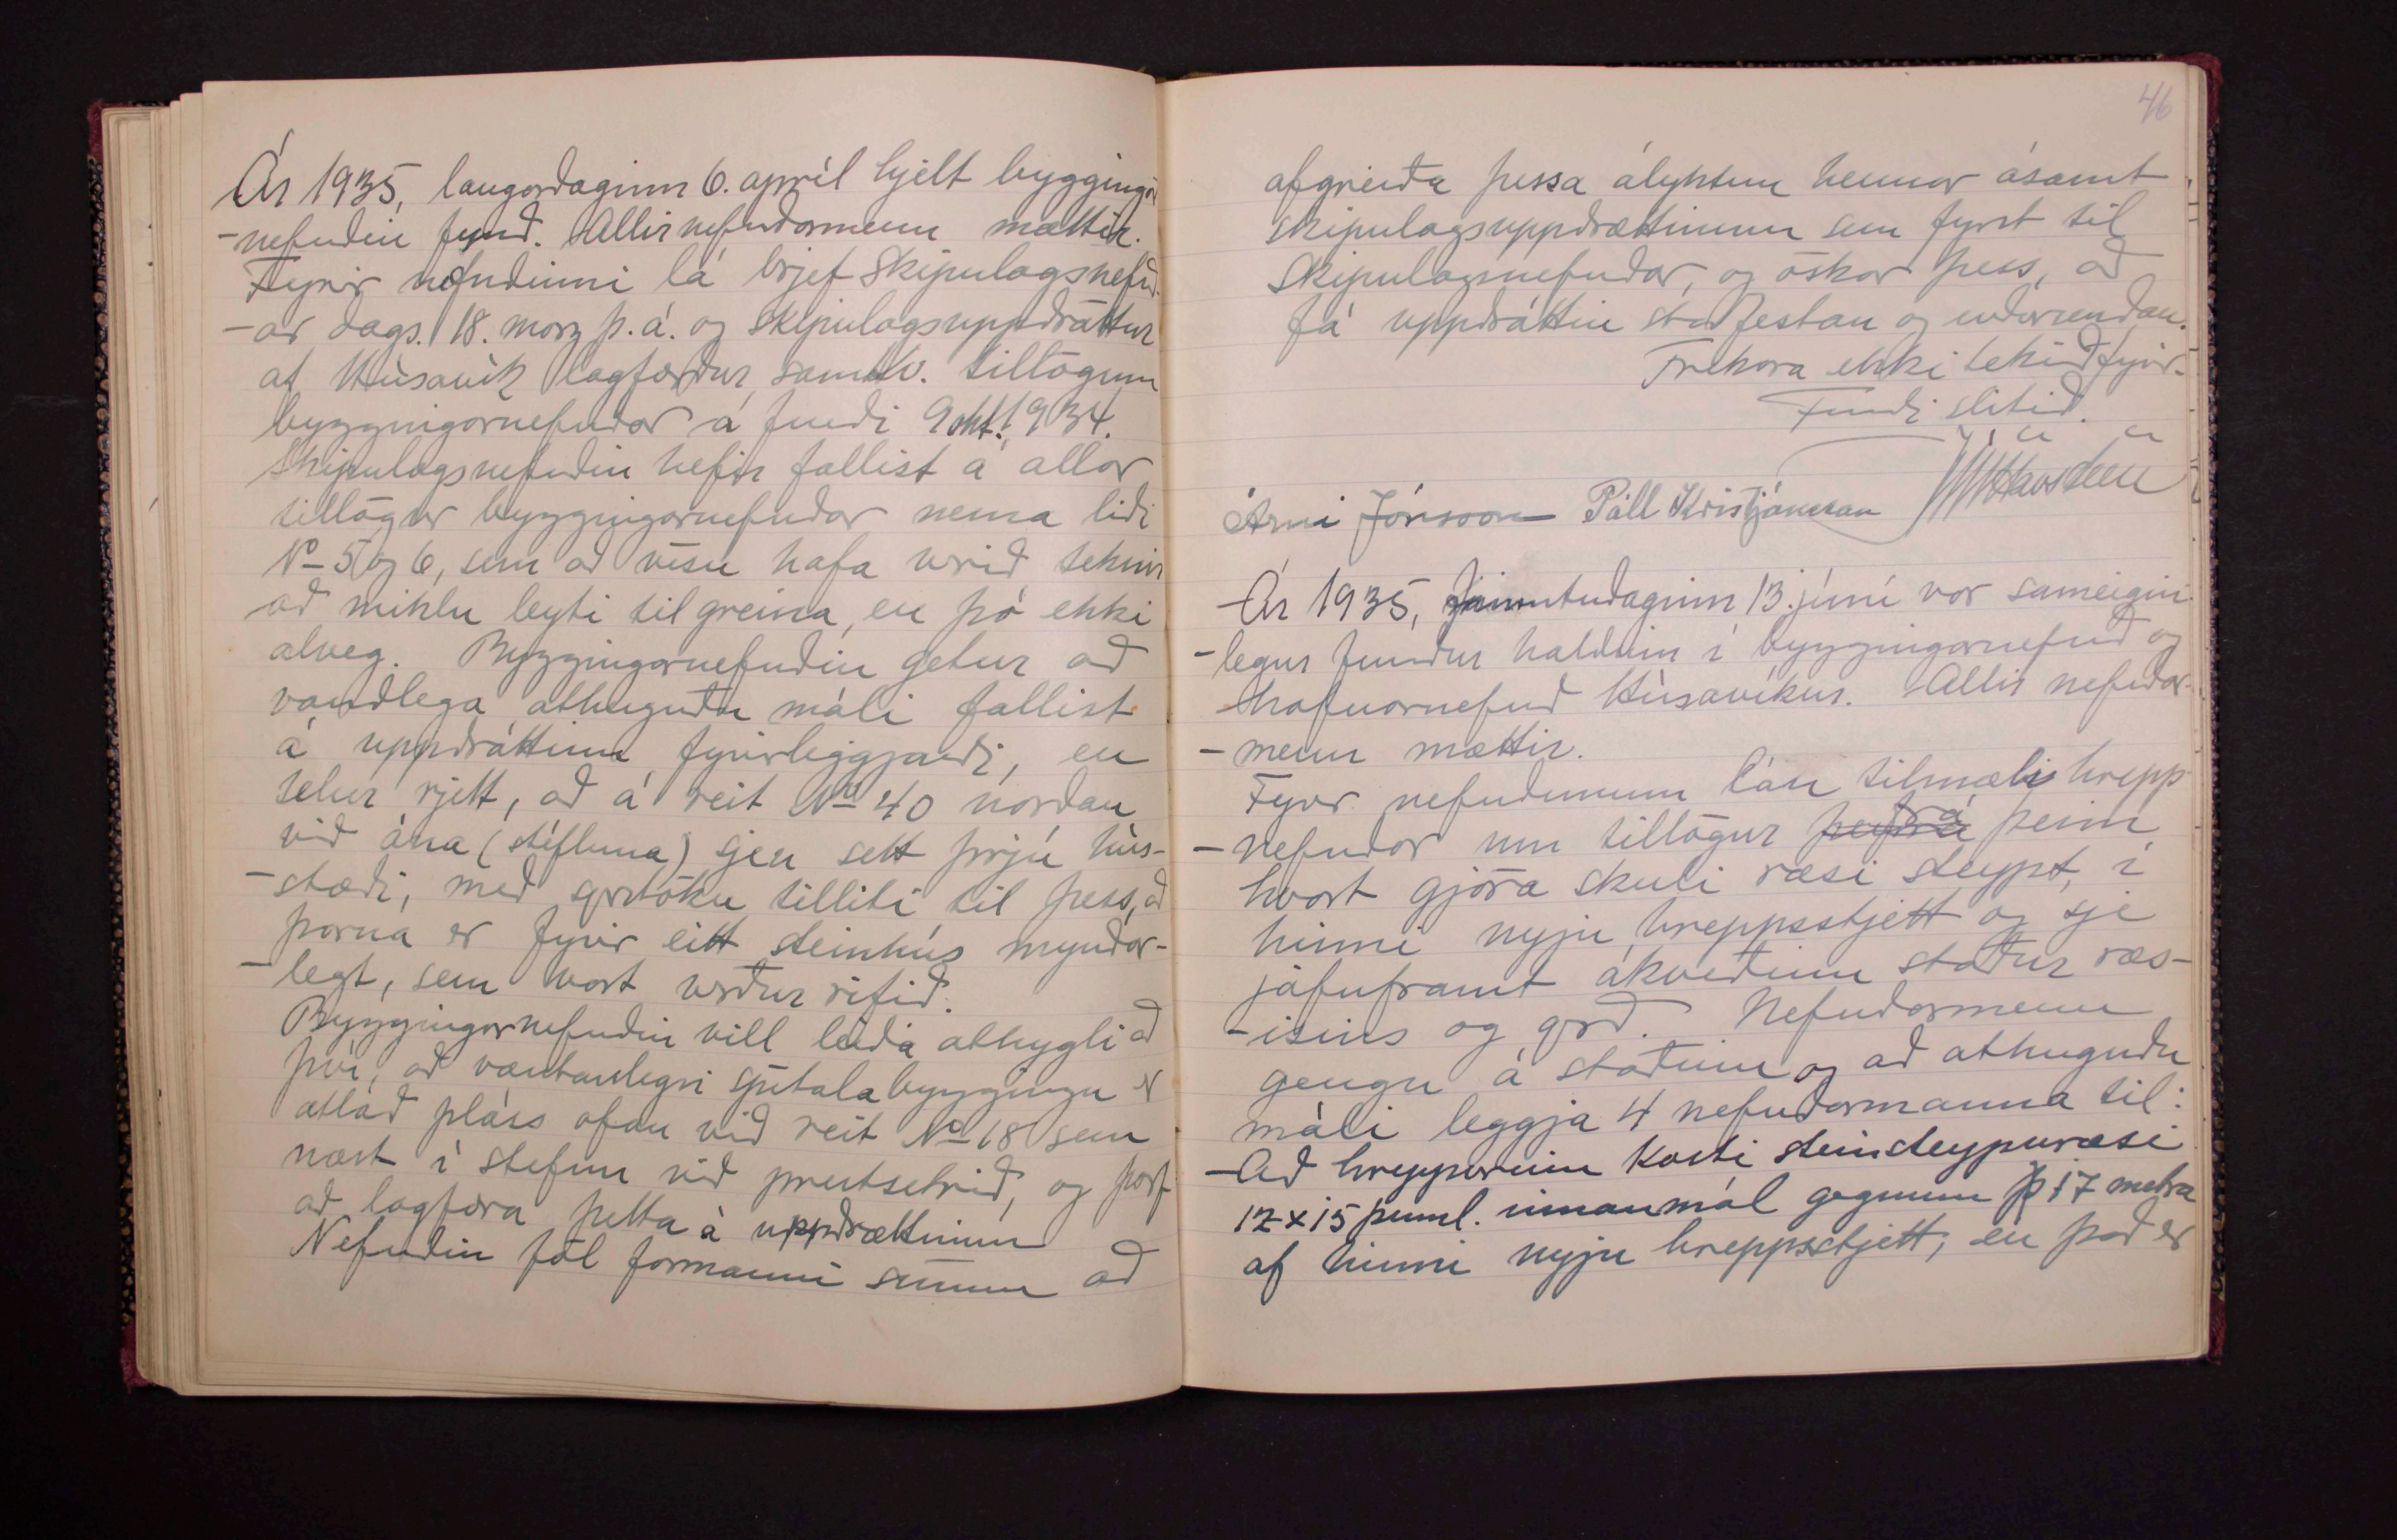 Ár 1935, laugardaginn 6. apríl hjelt byggingar
-nefndin fund. Allir nefndarmenn mættir.
Fyrir nefndinni lá brjef Skipulagsnefnd-
-ar dags. 18. marz þ. á. og skipulagsuppdráttur
af Húsavík lagfærður samkv. tillögum
byggingarnefndar á fundi 9 okt. 1934.
Skipulagsnefndin hefir fallist á allar
tillögur byggingarnefndar nema liði
No 5 og 6, sem að vísu hafa verið teknir
að miklu leyti til greina, en þó ekki
alveg. Byggingarnefndin getur að
vandlega athuguðu máli fallist
á uppdráttinn fyrirleggjandi, en
telur rjett, að á reit No 40 norðan
við ána (stífluna) sjeu sett þrjú hús-
-stæði, með sjerstöku tilliti til þess, að
þarna er fyrir eitt steinhús myndar-
-legt, sem vart verður rifið.
Byggingarnefndin vill leiða athygli að
því, að væntanlegri spítalabyggingu er
ætlað pláss ofan við reit No 18 sem
næst í stefnu við prestsetrið, og þarf
að lagfæra þetta á uppdrættinum
Nefndin fól formanni sínum að
46
afgreiða þessa ályktun hennar ásamt
skipulagsuppdrættinum sem fyrst til
Skipulagsnefndar, og óskar þess, að
fá uppdráttin staðfestan og endursendan.
Frekara ekki tekið fyrir.
Fundi slitið.
Árni Jónsson Páll Kristjánsson
Ár 1935, fimmtudaginn 13. júní var sameigin-
-legur fundur haldinn í byggingarnefnd og
hafnarnefnd Húsavíkur. Allir nefndar-
-menn mættir.
Fyrir nefndunum láu tilmæli hrepps
-nefndar um tillögur frá þeim
hvort gjöra skuli ræsi steypt, í
hinni nyju hreppsstjett og sje
jafnframt ákveðinn staður ræs-
-isins og gerð. Nefndarmenn
gengu á staðinn og að athuguðu
máli leggja 4 nefndarmanna til:
Að hreppurinn kosti steinsteypuræsi
12 x 15 þuml. innanmál gegnum þ 17 metra
af hinni nyju hreppsstjett, en það er